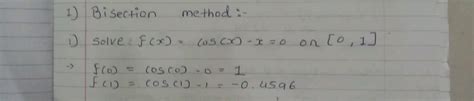 1) Bisection method :-
i) solve : f(x) = cos(x) - x = 0 on [0, 1]
→ f(0) = cos(0) - 0 = 1
f(1) = cos(1) - 1 = -0.4596